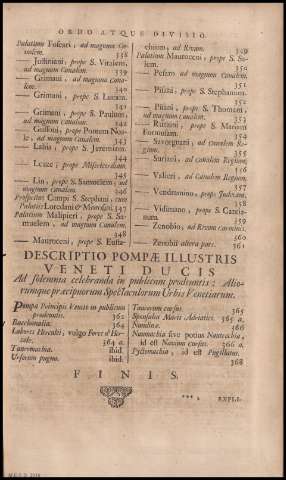 ORDO ATQUE DIVISIO.
Palatium Foscari, ad magnum Canalem. 338
— Justiniani, prope S. Vitalem, ad magnum Canalem. 339
— Grimani, ad magnum Canalem. 340
— Grimani, prope S. Lucam. 341
— Grimani, prope S. Paulum, ad magnum Canalem. 342
— Gussoni, prope Pontem Noale, ad magnum Canalem. 343
— Labia, prope S. Jeremiam. 344
— Lezze, prope Misericordiam. 345
— Lin, prope S. Samuelem, ad magnum canalem. 346
Prospectus Campi S. Stephani, cum Palatiis Loredani & Morosini. 347
Palatium Malipieri, prope S. Samuelem, ad magnum canalem. 348
— Mauroceni, prope S. Eusta-
chium, ad Rivum. 349
Palatium Mauroceni, prope S. 350
— Pesaro ad magnum Canalem. 351
— Pisani, prope S. Stephanum. 352
— Pisani, prope S. Thomam, ad magnum Canalem. 353
— prope S. Mariam Formosam. 354
— Savorgnani, ad Canalem Regium. 355
— Suriani, ad Canalem Regium. 356
— Valieri, ad Canalem Regium. 357
— Vendramino, prope Judæam. 358
— Vidimano, prope S. Cancianum. 359
— Zenobio, ad Rivum Carminis. 360
— Zenobii altera pars. 361
DESCRIPTIO POMPÆ ILLUSTRIS
VENETI DUCIS
Ad solemnia celebranda in publicum prodeuntis; Aliorumque præcipuorum Spectaculorum Urbis Venetiarum.
Pompa Principis Venetis in publicum prodeuntis. 362
Bacchanalia. 364
Labores Herculis, vulgo Forze d'Hercole. 364 a.
Tauromachia. ibid.
Ursorum pugna. ibid.
Taurorum cursus 365
Sponsalia Maris Adriatici. 365 a.
Nundinæ. 366
Naumachia sive potius Nautechia, id est Navium cursus. 366 a.
Pyctomachia, id est Pugillatus. 368
FINIS.
*** 2 EXPLI-